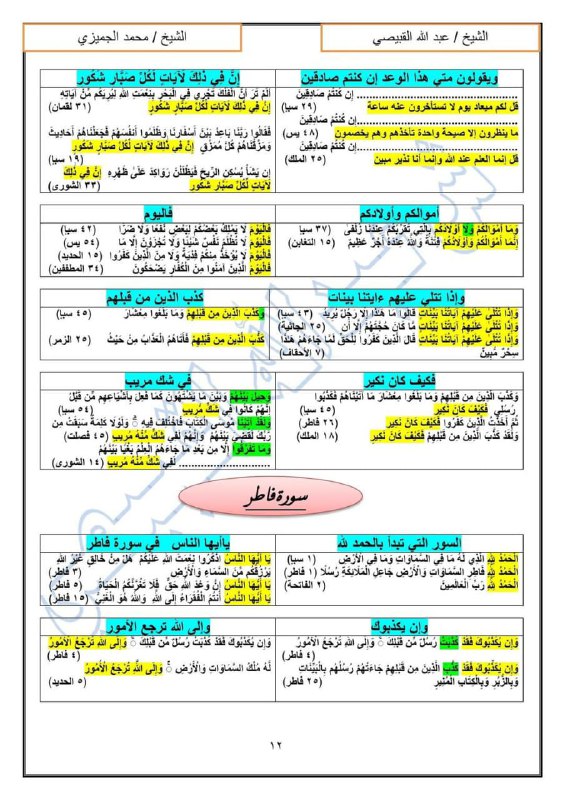 الشيخ / عبد الله القبيصي
الشيخ / محمد الجميزي
ويقولون متي هذا الوعد إن كنتم صادقين
................................ إِن كُنتُمْ صَادِقِينَ
قل لكم ميعاد يوم لا تستأخرون عنه ساعة (٢٩ سبا)
................................ إِن كُنتُمْ صَادِقِينَ
ما ينظرون إلا صيحة واحدة تأخذهم وهم يخصمون (٤٨ يس)
................................ إِن كُنتُمْ صَادِقِينَ
قل إنما العلم عند الله وإنما أنا نذير مبين (٢٥ الملك)
إِنَّ فِي ذَلِكَ لَآيَاتٍ لِّكُلِّ صَبَّارٍ شَكُورٍ
أَلَمْ تَرَ أَنَّ الْفُلْكَ تَجْرِي فِي الْبَحْرِ بِنِعْمَتِ اللَّهِ لِيُرِيَكُم مِّنْ آيَاتِهِ
إِنَّ فِي ذَلِكَ لَآيَاتٍ لِّكُلِّ صَبَّارٍ شَكُورٍ (٣١ لقمان)
فَقَالُوا رَبَّنَا بَاعِدْ بَيْنَ أَسْفَارِنَا وَظَلَمُوا أَنفُسَهُمْ فَجَعَلْنَاهُمْ أَحَادِيثَ
وَمَزَّقْنَاهُمْ كُلَّ مُمَزَّقٍ إِنَّ فِي ذَلِكَ لَآيَاتٍ لِّكُلِّ صَبَّارٍ شَكُورٍ
(١٩ سبا)
إِن يَشَأْ يُسْكِنِ الرِّيحَ فَيَظْلَلْنَ رَوَاكِدَ عَلَى ظَهْرِهِ إِنَّ فِي ذَلِكَ
لَآيَاتٍ لِّكُلِّ صَبَّارٍ شَكُورٍ (٣٣ الشورى)
أموالكم وأولادكم
وَمَا أَمْوَالُكُمْ وَلَا أَوْلَادُكُم بِالَّتِي تُقَرِّبُكُمْ عِندَنَا زُلْفَى (٣٧ سبا)
إِنَّمَا أَمْوَالُكُمْ وَأَوْلَادُكُمْ فِتْنَةٌ وَاللَّهُ عِندَهُ أَجْرٌ عَظِيمٌ (١٥ التغابن)
فاليوم
فَالْيَوْمَ لَا يَمْلِكُ بَعْضُكُمْ لِبَعْضٍ نَّفْعًا وَلَا ضَرًّا (٤٢ سبا)
فَالْيَوْمَ لَا تُظْلَمُ نَفْسٌ شَيْئًا وَلَا تُجْزَوْنَ إِلَّا مَا (٥٤ يس)
فَالْيَوْمَ لَا يُؤْخَذُ مِنكُمْ فِدْيَةٌ وَلَا مِنَ الَّذِينَ كَفَرُوا (١٥ الحديد)
فَالْيَوْمَ الَّذِينَ آمَنُوا مِنَ الْكُفَّارِ يَضْحَكُونَ (٣٤ المطففين)
وإذا تتلي عليهم ءاياتنا بينات
وَإِذَا تُتْلَى عَلَيْهِمْ آيَاتُنَا بَيِّنَاتٍ قَالُوا مَا هَذَا إِلَّا رَجُلٌ يُرِيدُ (٤٣ سبا)
وَإِذَا تُتْلَى عَلَيْهِمْ آيَاتُنَا بَيِّنَاتٍ مَّا كَانَ حُجَّتَهُمْ إِلَّا أَن (٢٥ الجاثية)
وَإِذَا تُتْلَى عَلَيْهِمْ آيَاتُنَا بَيِّنَاتٍ قَالَ الَّذِينَ كَفَرُوا لِلْحَقِّ لَمَّا جَاءَهُمْ هَذَا
سِحْرٌ مُّبِينٌ (٧ الأحقاف)
كذب الذين من قبلهم
وَكَذَّبَ الَّذِينَ مِن قَبْلِهِمْ وَمَا بَلَغُوا مِعْشَارَ (٤٥ سبا)
كَذَّبَ الَّذِينَ مِن قَبْلِهِمْ فَأَتَاهُمُ الْعَذَابُ مِنْ حَيْثُ (٢٥ الزمر)
فكيف كان نكير
وَكَذَّبَ الَّذِينَ مِن قَبْلِهِمْ وَمَا بَلَغُوا مِعْشَارَ مَا آتَيْنَاهُمْ فَكَذَّبُوا
رُسُلِي فَكَيْفَ كَانَ نَكِيرِ (٤٥ سبا)
ثُمَّ أَخَذْتُ الَّذِينَ كَفَرُوا فَكَيْفَ كَانَ نَكِيرِ (٢٦ فاطر)
وَلَقَدْ كَذَّبَ الَّذِينَ مِن قَبْلِهِمْ فَكَيْفَ كَانَ نَكِيرِ (١٨ الملك)
في شك مريب
وَحِيلَ بَيْنَهُمْ وَبَيْنَ مَا يَشْتَهُونَ كَمَا فُعِلَ بِأَشْيَاعِهِم مِّن قَبْلُ
إِنَّهُمْ كَانُوا فِي شَكٍّ مُّرِيبٍ (٥٤ سبا)
وَلَقَدْ آتَيْنَا مُوسَى الْكِتَابَ فَاخْتُلِفَ فِيهِ ۗ وَلَوْلَا كَلِمَةٌ سَبَقَتْ مِن
رَّبِّكَ لَقُضِيَ بَيْنَهُمْ وَإِنَّهُمْ لَفِي شَكٍّ مِّنْهُ مُرِيبٍ (٤٥ فصلت)
وَمَا تَفَرَّقُوا إِلَّا مِن بَعْدِ مَا جَاءَهُمُ الْعِلْمُ بَغْيًا بَيْنَهُمْ
........................ لَفِي شَكٍّ مِّنْهُ مُرِيبٍ (١٤ الشورى)
سورة فاطر
السور التي تبدأ بالحمد لله
الْحَمْدُ لِلَّهِ الَّذِي لَهُ مَا فِي السَّمَاوَاتِ وَمَا فِي الْأَرْضِ (١ سبا)
الْحَمْدُ لِلَّهِ فَاطِرِ السَّمَاوَاتِ وَالْأَرْضِ جَاعِلِ الْمَلَائِكَةِ رُسُلًا (١ فاطر)
الْحَمْدُ لِلَّهِ رَبِّ الْعَالَمِينَ (٢ الفاتحة)
ياأيها الناس في سورة فاطر
يَا أَيُّهَا النَّاسُ اذْكُرُوا نِعْمَتَ اللَّهِ عَلَيْكُمْ هَلْ مِنْ خَالِقٍ غَيْرُ اللَّهِ
يَرْزُقُكُم مِّنَ السَّمَاءِ وَالْأَرْضِ (٣ فاطر)
يَا أَيُّهَا النَّاسُ إِنَّ وَعْدَ اللَّهِ حَقٌّ فَلَا تَغُرَّنَّكُمُ الْحَيَاةُ (٥ فاطر)
يَا أَيُّهَا النَّاسُ أَنتُمُ الْفُقَرَاءُ إِلَى اللَّهِ وَاللَّهُ هُوَ الْغَنِيُّ (١٥ فاطر)
وإن يكذبوك
وَإِن يُكَذِّبُوكَ فَقَدْ كُذِّبَتْ رُسُلٌ مِّن قَبْلِكَ ۚ وَإِلَى اللَّهِ تُرْجَعُ الْأُمُورُ
(٤ فاطر)
وَإِن يُكَذِّبُوكَ فَقَدْ كَذَّبَ الَّذِينَ مِن قَبْلِهِمْ جَاءَتْهُمْ رُسُلُهُم بِالْبَيِّنَاتِ
وَبِالزُّبُرِ وَبِالْكِتَابِ الْمُنِيرِ (٢٥ فاطر)
وإلى الله ترجع الأمور
وَإِن يُكَذِّبُوكَ فَقَدْ كُذِّبَتْ رُسُلٌ مِّن قَبْلِكَ ۚ وَإِلَى اللَّهِ تُرْجَعُ الْأُمُورُ
(٤ فاطر)
لَهُ مُلْكُ السَّمَاوَاتِ وَالْأَرْضِ ۚ وَإِلَى اللَّهِ تُرْجَعُ الْأُمُورُ
(٥ الحديد)
١٢